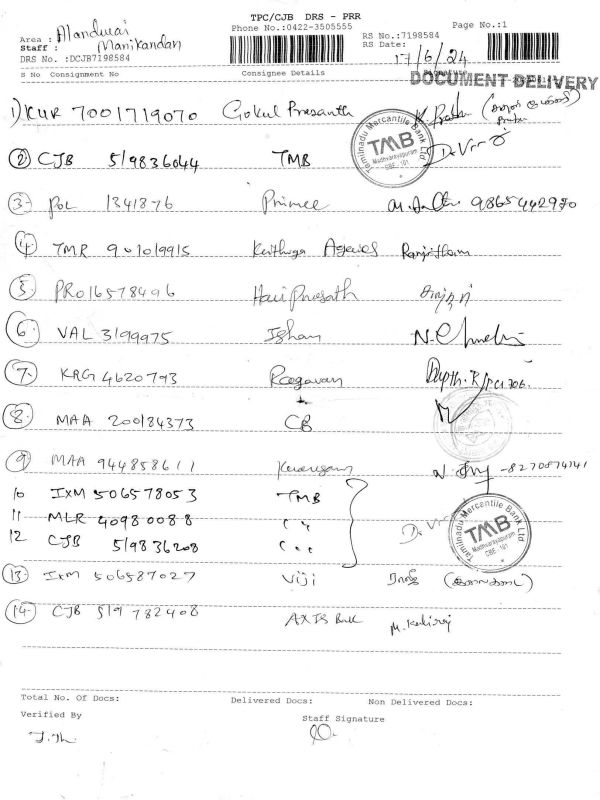 TPC/CJB DRS - PRR
Phone No.:0422-3505555
Page No.:1
Area : Mandvarai
RS No.:7198584
Staff : Manikandan
RS Date: 17/6/24
DRS No. :DCJB7198584
DOCUMENT DELIVERY
S No Consignment No Consignee Details
1) KUR 7001719070 Gokul Prasanth
2 CJB 519836044 TMB
Tamilnadu Mercantile Bank Ltd
TMB
Madhvarayapuram
CBE - 101
3 POL 1341876 Prince 9865442920
4 TMR 901019915 Ranjitham
5 PRO16578496 Hari Prasath
6 VAL 3199975 Ishan
7. KRG 4620793 Raagavan
8 MAA 200184373 CB
9 MAA 944858611 - 8270874141
10 IXM 506578053 TMB
11 MLR 40980088 " "
12 CJB 519836208 " "
Tamilnadu Mercantile Bank Ltd
TMB
Madhvarayapuram
CBE - 101
13 IXM 506587027 Viji
14 CJB 519782408 AXIS Bank
Total No. Of Docs: Delivered Docs: Non Delivered Docs:
Verified By
Staff Signature